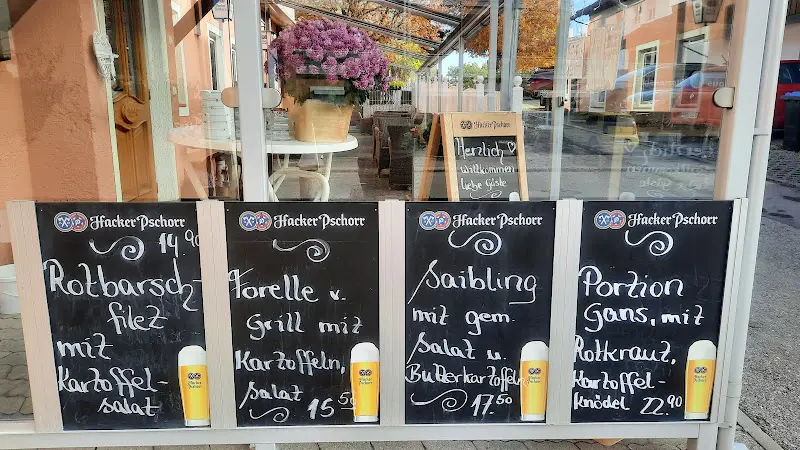 Hacker-Pschorr
Herzlich
willkommen
liebe Gäste
Hacker-Pschorr
14.90
Rotbarsch-
filet
mit
Kartoffel-
salat
Hacker-Pschorr
Forelle v.
Grill mit
Kartoffeln,
Salat 15.50
Hacker-Pschorr
Saibling
mit gem.
Salat u.
Butterkartoffeln
17.50
Hacker-Pschorr
Portion
Gans, mit
Rotkraut,
Kartoffel-
knödel 22.90